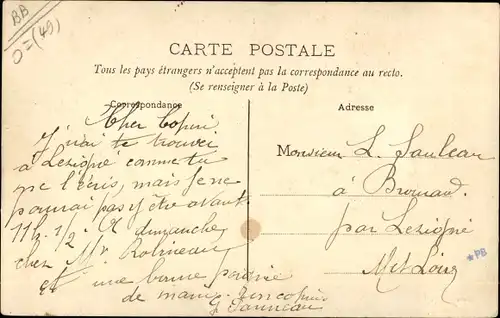 BB
0=(49)
CARTE POSTALE
Tous les pays étrangers n'acceptent pas la correspondance au recto.
(Se renseigner à la Poste)
Correspondance
Cher Copin
J'irai te trouver
à Lezigné comme tu
me l'écris, mais je ne
pourrai pas y être avant
11h 1/2. A dimanche
chez Mr Robineau
et une bonne poignée
de main. Ton copin
Adresse
Monsieur L.
à
par Lezigné
M et Loire
*PB